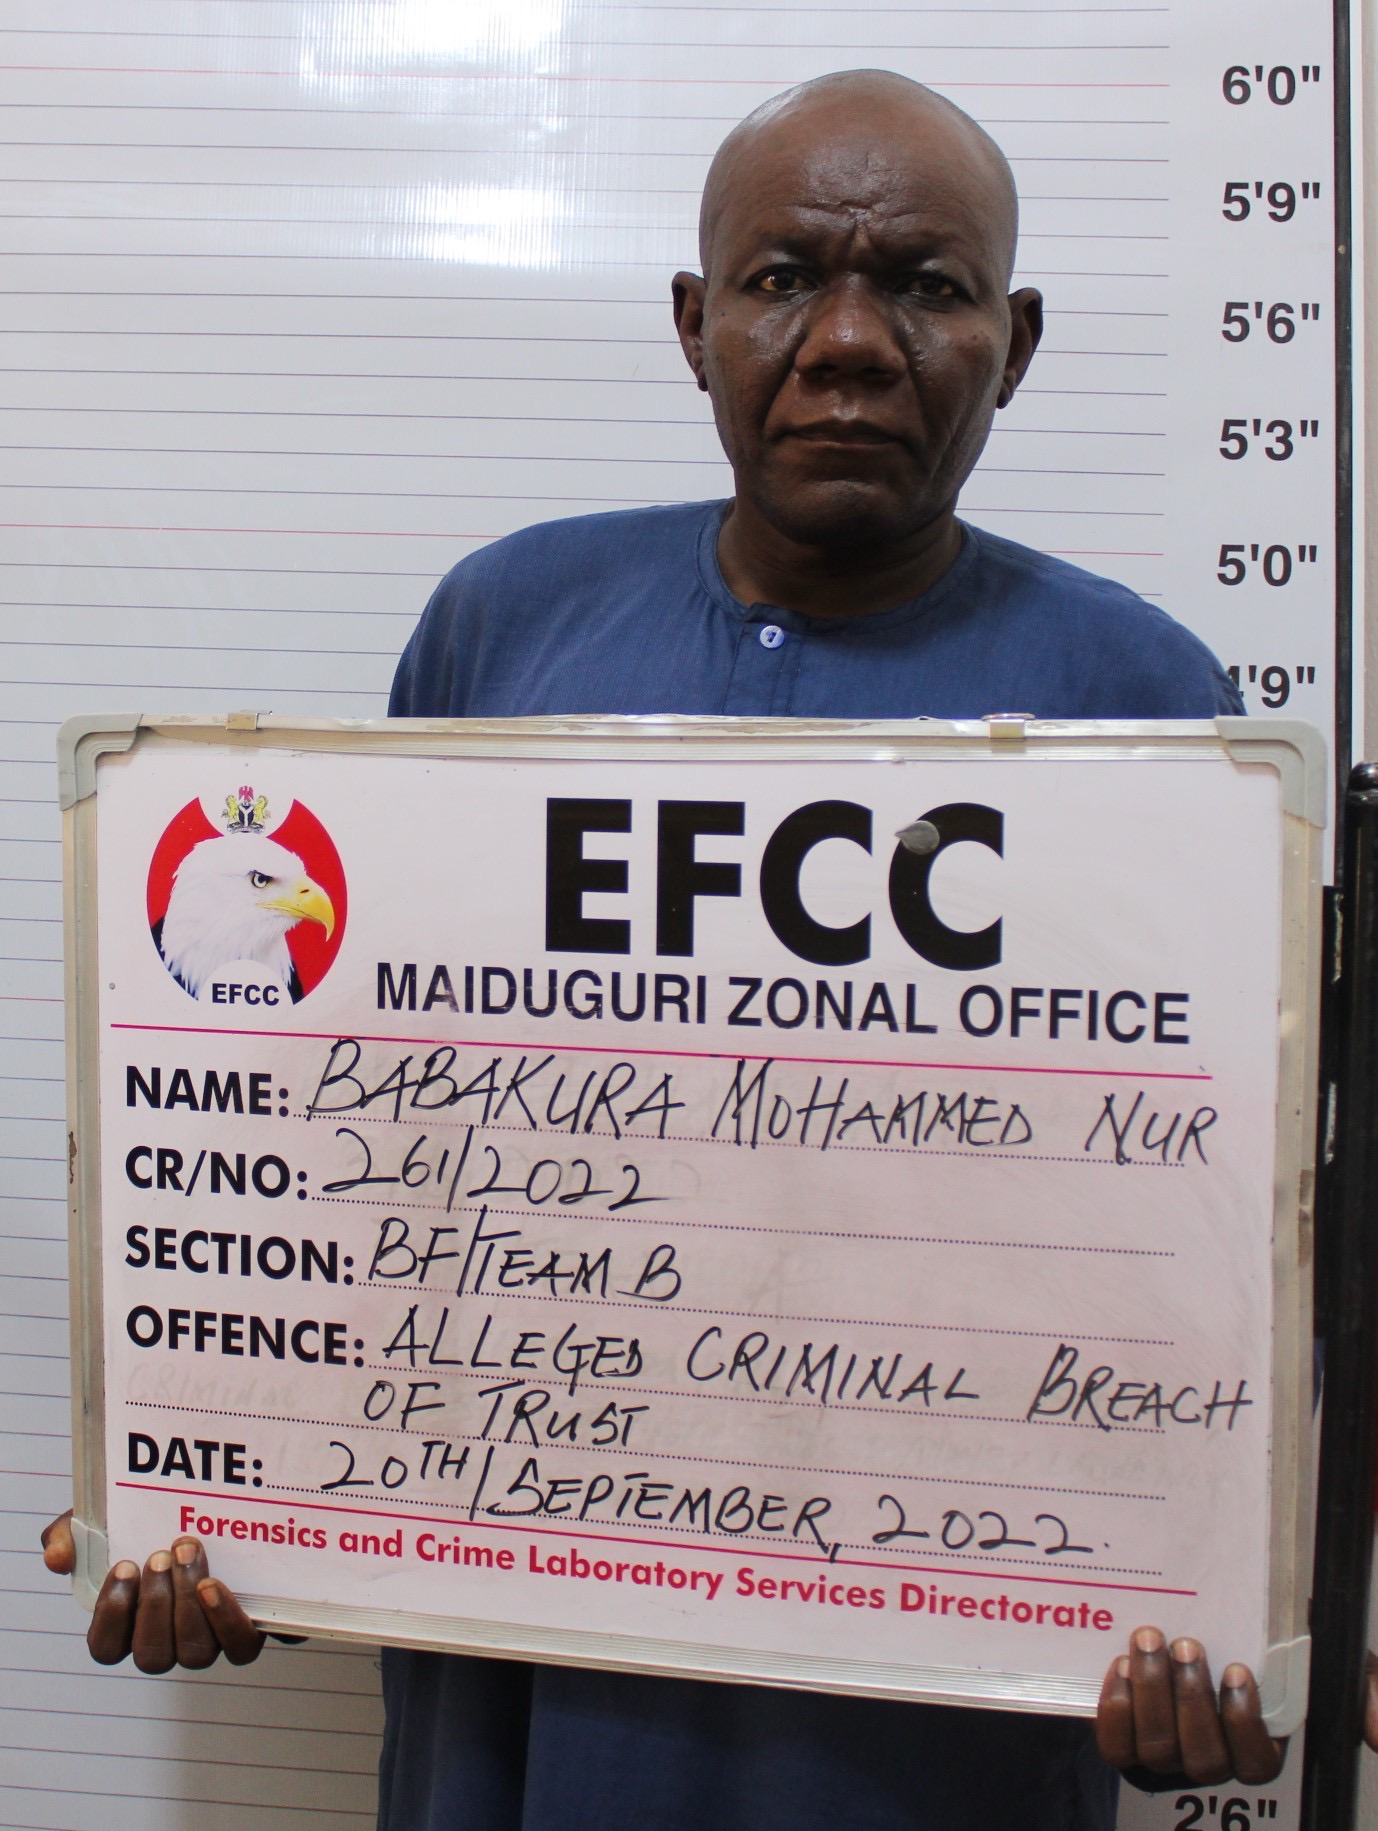 6'0"
5'9"
5'6"
5'3"
5'0"
4'9"
EFCC
EFCC
MAIDUGURI ZONAL OFFICE
NAME: BABAKURA MOHAMMED NUR
CR/NO: 261/2022
SECTION: BF/TEAM B
OFFENCE: ALLEGED CRIMINAL BREACH
OF TRUST
DATE: 20TH/SEPTEMBER, 2022.
Forensics and Crime Laboratory Services Directorate
2'6"